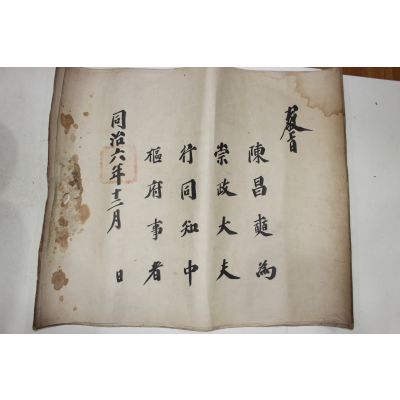 教旨
陳昌奭爲
崇政大夫
行同知中
樞府事者
同治六年十二月 日